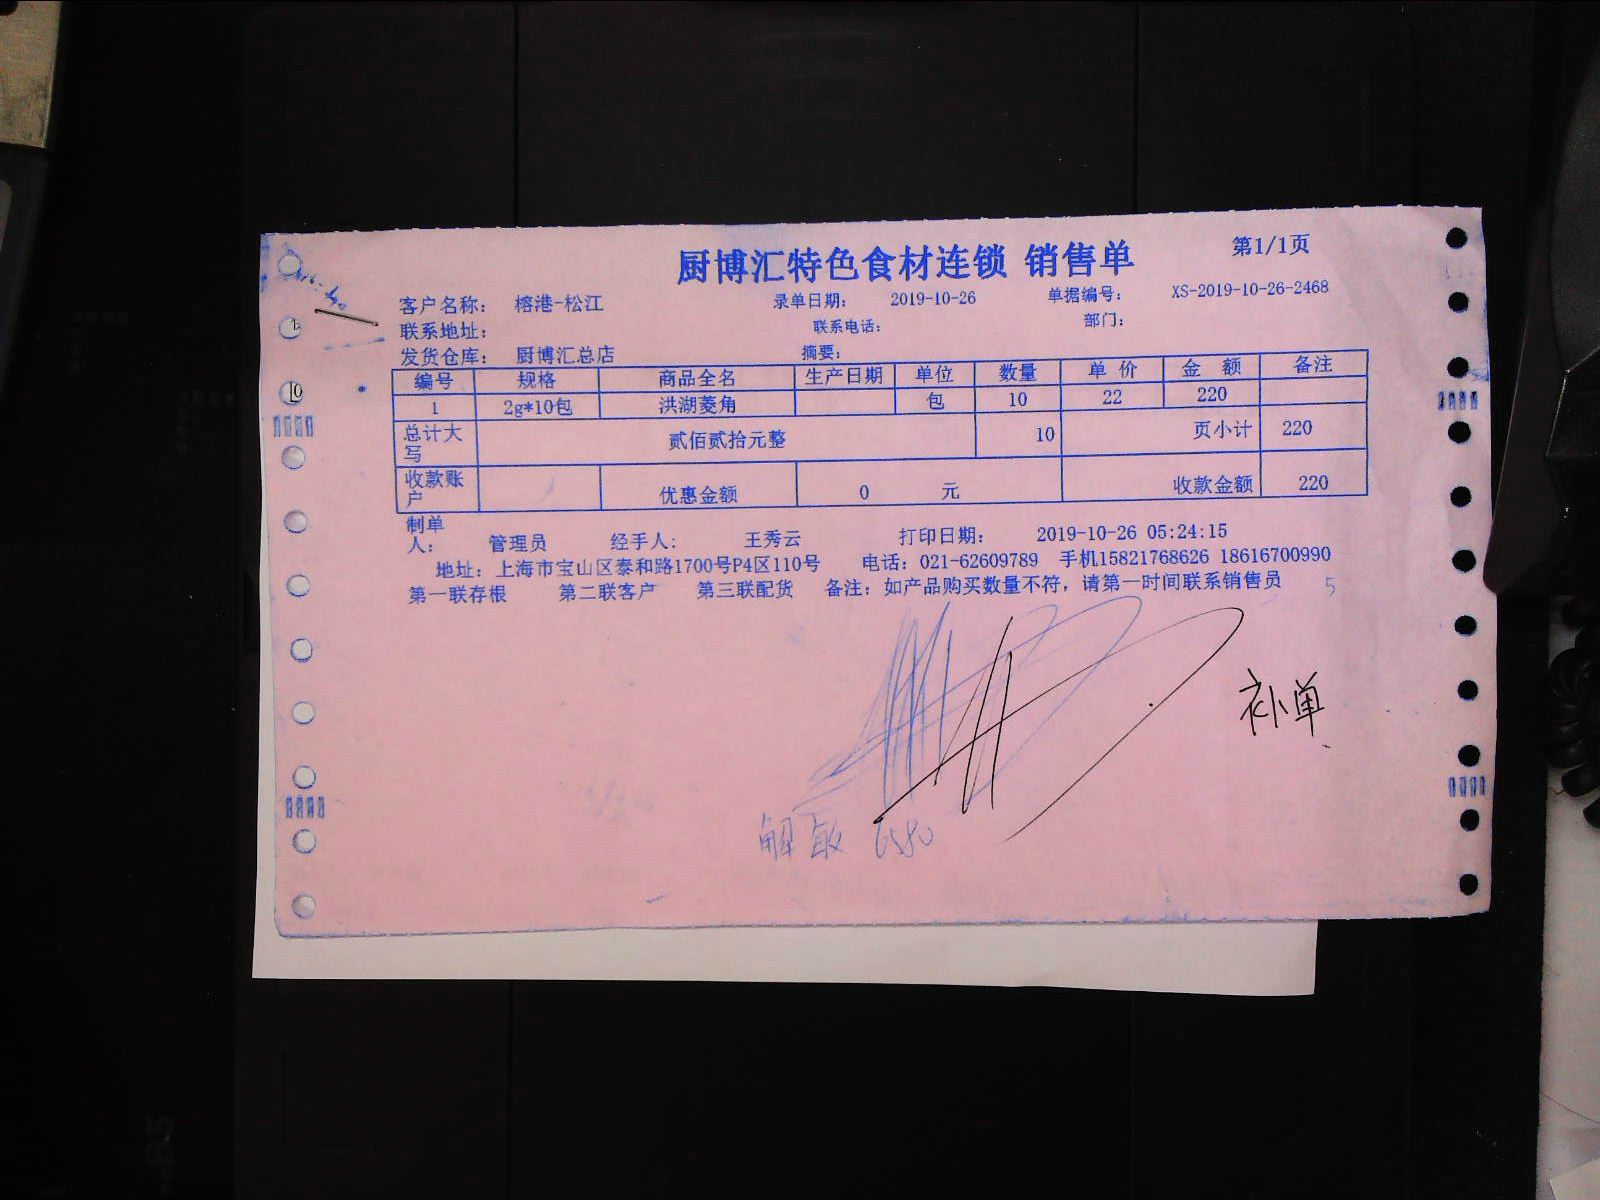 厨博汇特色食材连锁 销售单 第1/1页
客户名称： 榕港-松江 录单日期： 2019-10-26 单据编号： XS-2019-10-26-2468
联系地址： 联系电话： 部门：
发货仓库： 厨博汇总店 摘要：
编号 规格 商品全名 生产日期 单位 数量 单 价 金 额 备注
1 2g*10包 洪湖菱角 包 10 22 220
总计大写 贰佰贰拾元整 10 页小计 220
收款账户 优惠金额 0 元 收款金额 220
制单人： 管理员 经手人： 王秀云 打印日期： 2019-10-26 05:24:15
地址：上海市宝山区泰和路1700号P4区110号 电话：021-62609789 手机15821768626 18616700990
第一联存根 第二联客户 第三联配货 备注：如产品购买数量不符，请第一时间联系销售员 5
补单